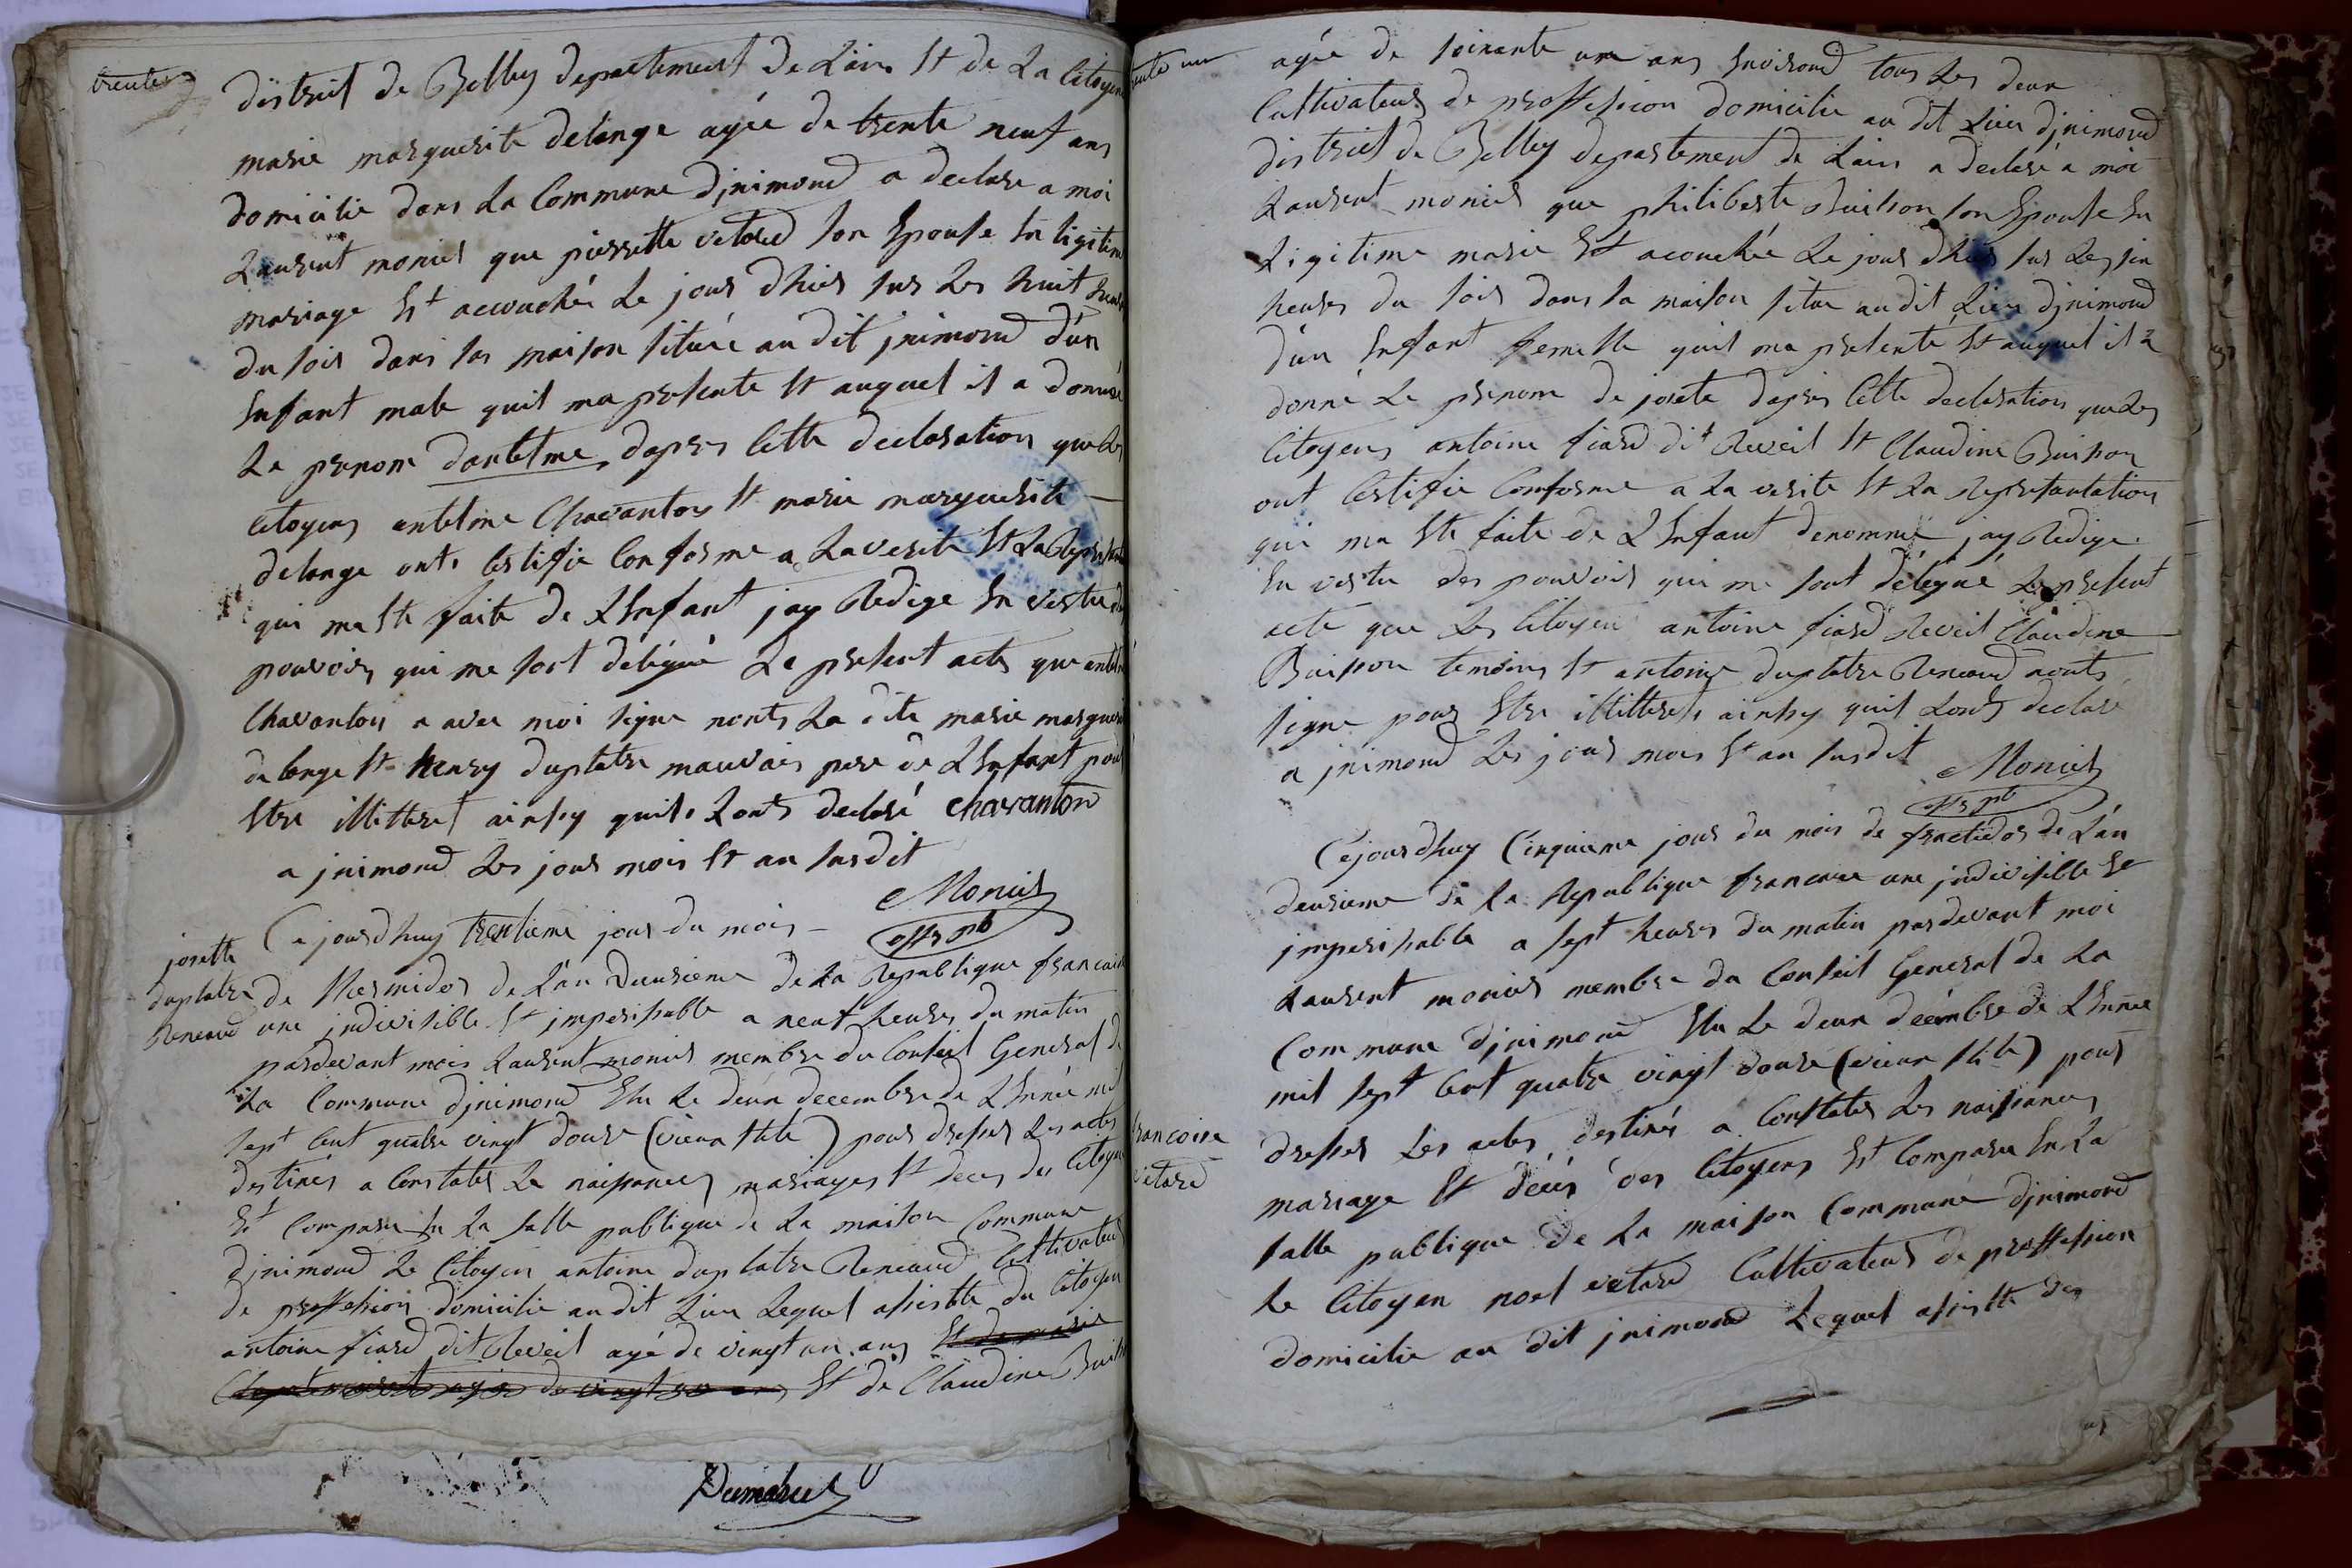 trente
district de Belley departement de Lain St de La Citoyene
marie marguerite delange agée de trente neuf ans
domicilie dans La Commune djnimond a declare a moi
Laurent monier que pierrette vetard son Epouse En ligitime
mariage Et accouchée Le jour dhier sur Les huit heures
du soir dans sa maison située au dit jnimond d'un
Enfant male quil ma presente Et auquel il a donné
Le prenom dantelme dapres Cette declaration que Les
Citoyens antelme Chavanton Et marie marguerite
delange ont Certifie Conforme a La verite Et La
qui ma Ete faite de LEnfant jay Redige En vertu des
pouvoirs qui me sont délégué Le present acte que
Chavanton a avec moi signe nonts La dite marie marguerite
delange Et henry duplatre mauvais pere de LEnfant pour
Etre illitteret ainsy quils Lonts declaré Chavanton
a jnimond Les jour mois Et an susdit
Monier
offr pb
josette
duplatre
Reneaud
Cejourdhuy trentieme jour du mois
de thermidor de Lan deuxieme de La Republique francaise
une jndivisible Et imperissable a neuf heures du matin
pardevant moi Laurent monier membre du Conseil General de
La Commune djnimond Elu Le deux decembre de LEnnée mil
sept Cent quatre vingt douze (vieux stile) pour dresser Les actes
destinés a Constater Le naissances mariages Et deces des Citoyens
Et Comparu En La salle publique de La maison Commune
djnimond Le Citoyen antoine duplatre Reneaud Cultivateur
de proffession domicilie au dit Lieu Lequel assistte du Citoyen
antoine fiard dit Reveil agé de vingt un ans
Et de Claudine
agée de soixante un ans Environd tous Les deux
Cultivateurs de proffession domicilie au dit Lieu djnimond
district de Belley departement de Lain a declaré a moi
Laurent monier que philiberte Buisson son Epouse En
Ligitime marie Et acouchée Le jour dhier sur Les six
heures du soir dans sa maison situe au dit Lieu djnimond
d'un Enfant femelle quil ma presenté Et auquel il a
donné Le prenom de josete dapres Cette declaration que Les
Citoyens antoine fiard dit Reveil Et Claudine Buisson
ont Certifie Conforme a La verite Et La Represantation
qui ma Ete faite de LEnfant denommé jay Redige
En vertu des pouvoirs qui me sont délégué Le present
acte que Les Citoyen antoine fiard Reveil Claudine
Buisson temoins Et antoine duplatre Reneaud nonts
signe pour Etre illitteret ainsy quil Lonts declaré
a jnimond Les jour mois Et an susdit
Monier
offr pb
Cejourdhuy Cinquieme jour du mois de fructidor de Lan
deuxieme de La Republique francaise une jndivisible Et
imperissable a sept heures du matin pardevant moi
Laurent monier membre du Conseil General de La
Commune djnimond Elu Le deux decembre de LEnnée
mil sept Cent quatre vingt douze (vieux stile) pour
francoise
vetard
dresser Les actes destinés a Constater Les naissances
mariage Et décès des Citoyens Et Comparu En La
salle publique de La maison Commune djnimond
Le Citoyen noel vetard Cultivateur de proffession
domicilie au dit jnimond Lequel assistte des